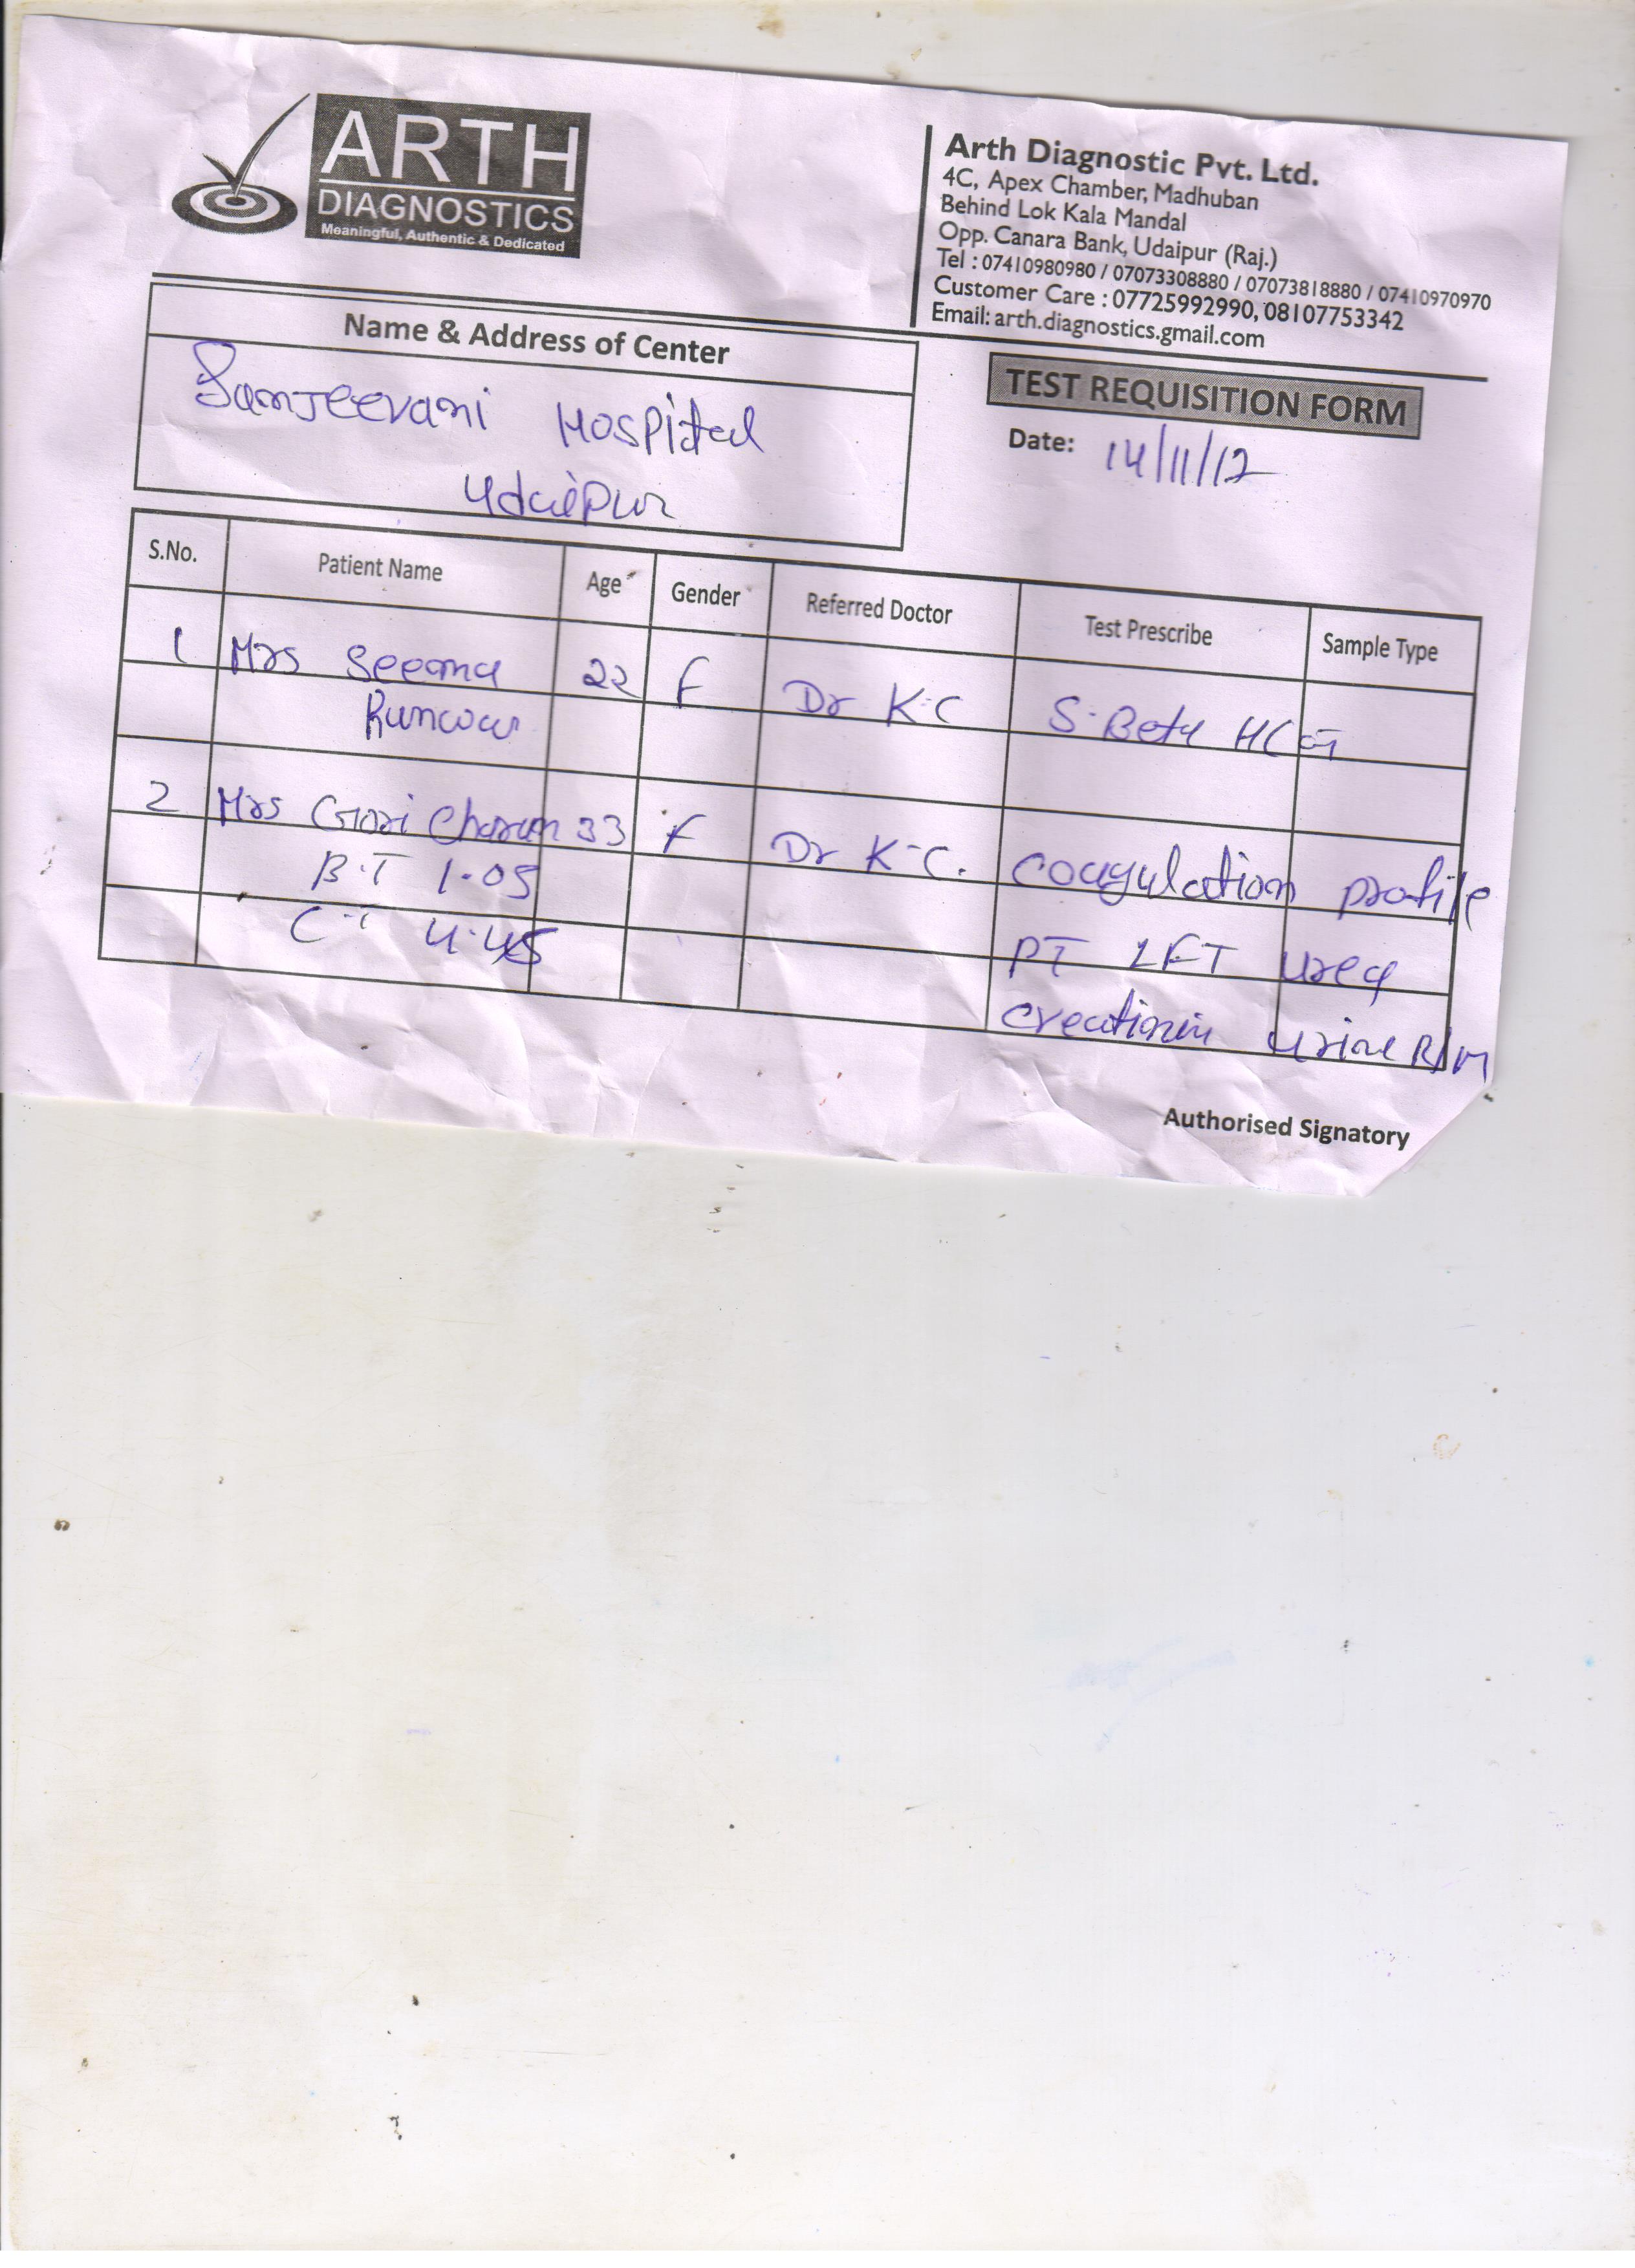 ARTH
DIAGNOSTICS
Meaningful, Authentic & Dedicated
Arth Diagnostic Pvt. Ltd.
4C, Apex Chamber, Madhuban
Behind Lok Kala Mandal
Opp. Canara Bank, Udaipur (Raj.)
Tel : 07410980980 / 07073308880 / 07073818880 / 07410970970
Customer Care : 07725992990, 08107753342
Email: arth.diagnostics.gmail.com
Name & Address of Center
Sanjeevani Hospital
Udaipur
TEST REQUISITION FORM
Date: 14/11/17
S.No. Patient Name Age Gender Referred Doctor Test Prescribe Sample Type
1 Mrs Seema 22 F Dr K.C S.Beta HCG
Kunwar
2 Mrs Gori Charan 33 F Dr K.C. coagulation profile
B.T 1.05 PT LFT urea
C.T 4.45 creatinin urine R/M
Authorised Signatory